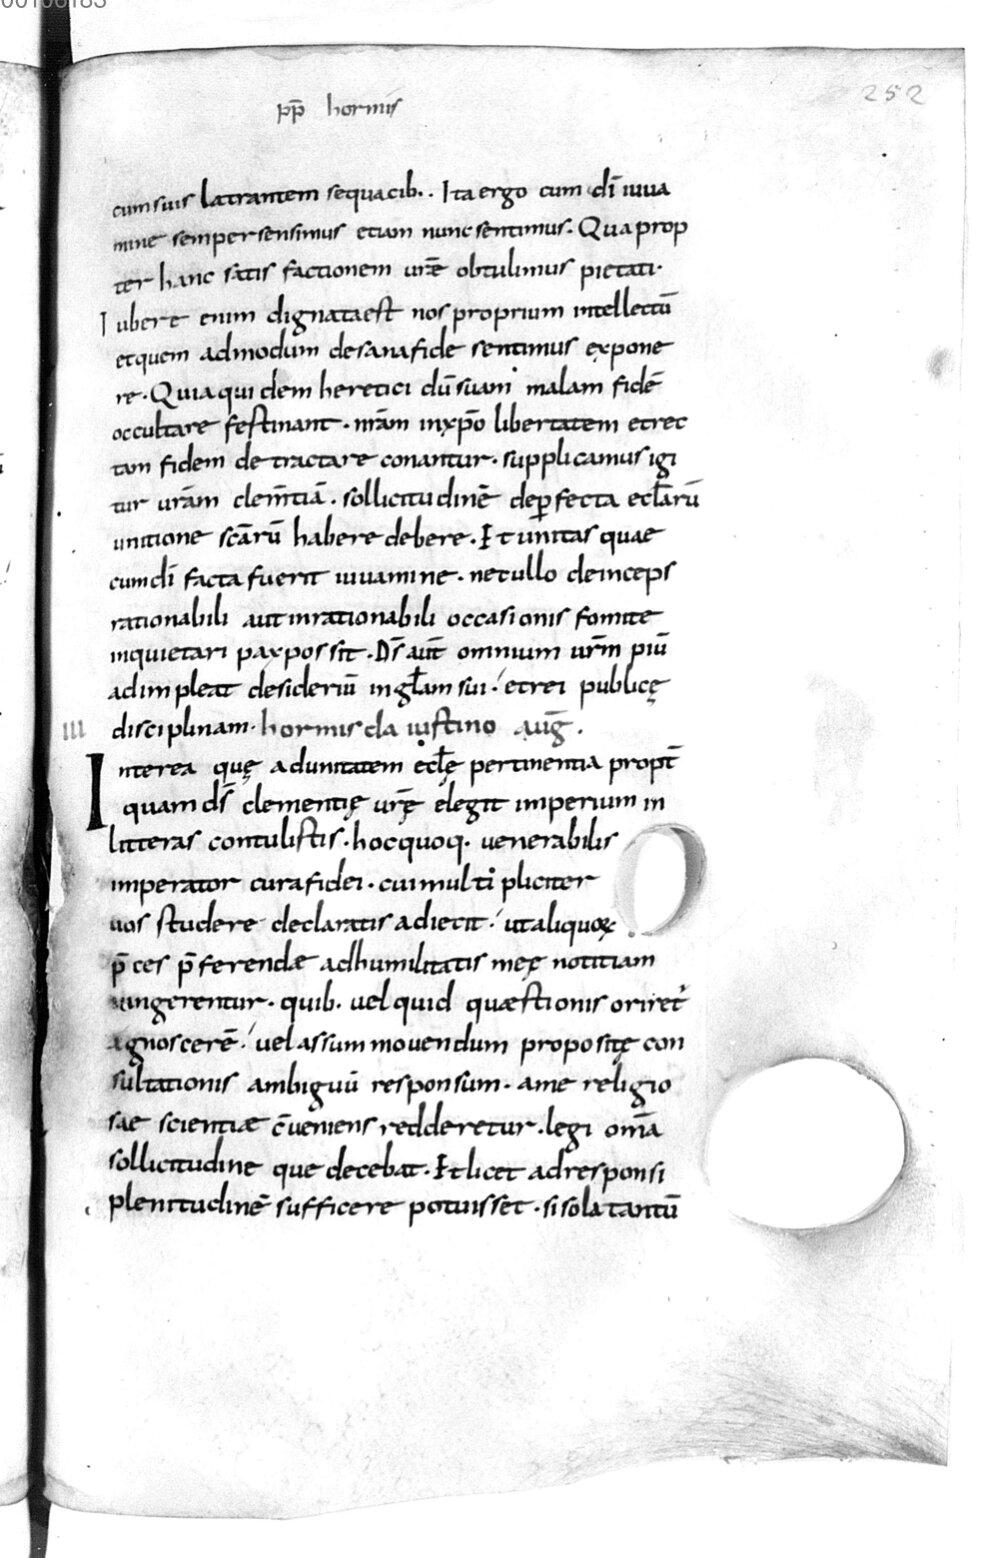 pp̄ hormis
252
cum suis latrantem sequacib. . Ita ergo cum dī iuua
mine semper sensimus etiam nunc sentimus. Quaprop
ter hanc satis factionem urē obtulimus pietati.
Iubere enim dignata est nos proprium intellectū
et quem admodum de sana fide sentimus expone
re. Quia qui dem heretici dū suam malam fidē
occultare festinant. nrām in xp̄o libertatem et rec
tam fidem de tractare conantur. supplicamus igi
tur urām clem̄tiā. sollicitudinē de ꝑfecta eclārū
unitione scārū habere debere. Et unitas quae
cum dī facta fuerit iuuamine. ne tullo deinceps
rationabili aut inrationabili occasionis fomite
inquietari pax possit. Ds̄ aut̄ omnium urm̄ piū
adimpleat desideriū in glām sui. et rei publicę
III disciplinam. hormisda iustino aug̅.
Interea quę ad unitatem eclę pertinentia propt̄
quam ds̄ clementię urę̄ elegit imperium in
litteras contulistis. hoc quoq. venerabilis
imperator cura fidei. cui multi pliciter
uos studere declaratis adiecit. ut aliquae
p̄ces p̄ferendae ad humilitatis meę notitiam
iungerentur. quib. uel quid quaestionis oriret̄
agnoscerē. uel assummouendum propositę con
sultationis ambiguū responsum. a me religio
sae scientiae c̄ueniens redderetur. legi om̄a
sollicitudine que decebat. Et licet ad responsi
plenitudinē sufficere potuisset. si sola tantū